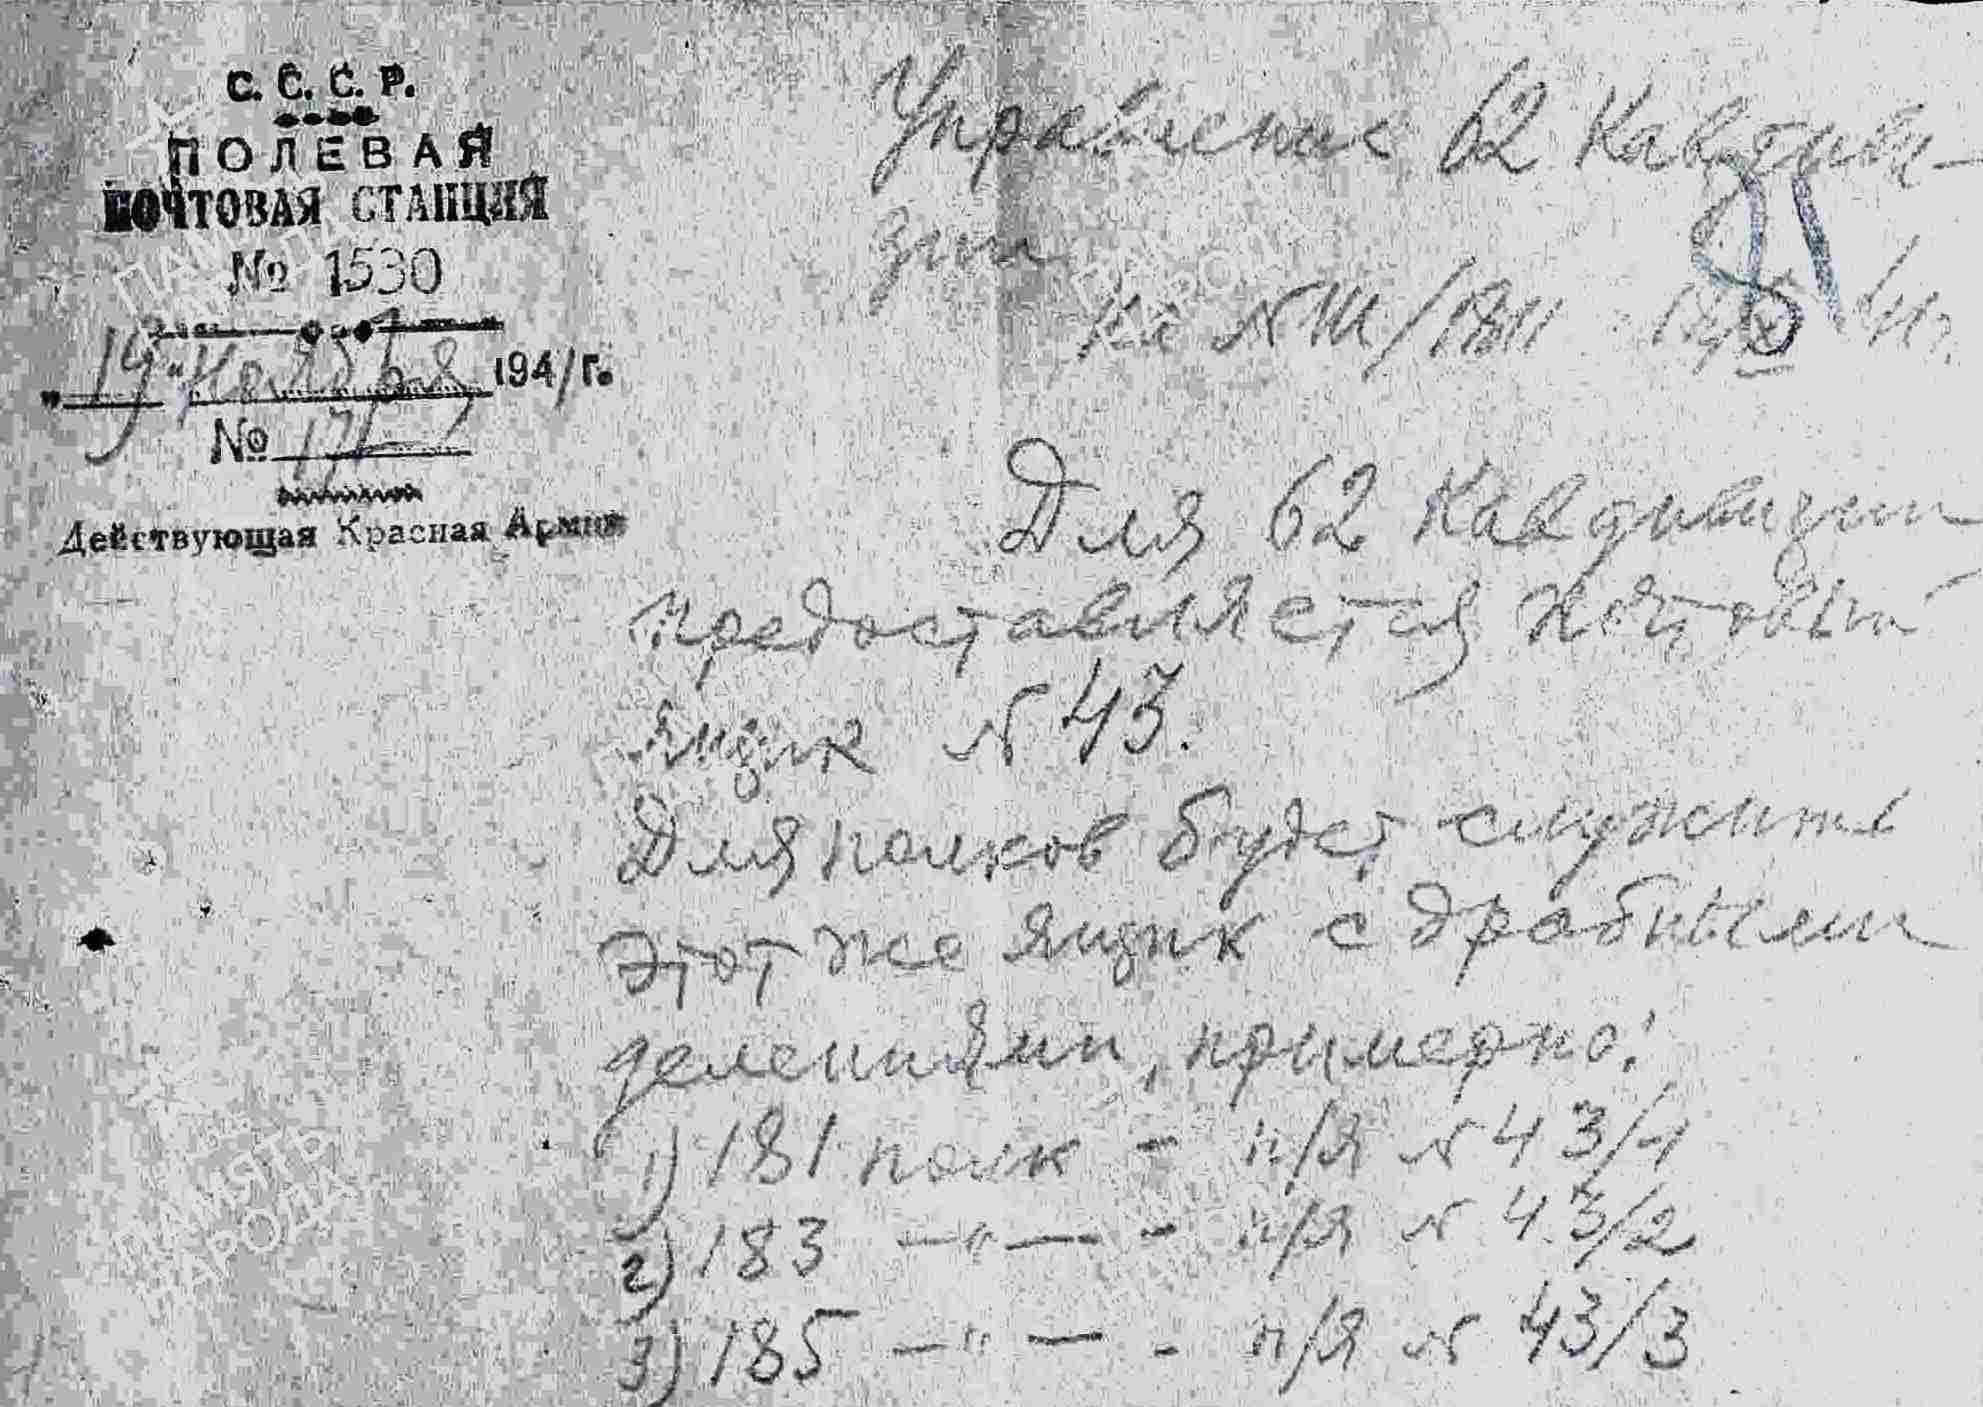 С. С. С. Р.
ПОЛЕВАЯ
ПОЧТОВАЯ СТАНЦИЯ
№ 1530
"19" Ноября 1941 г.
№
Действующая Красная Армия
Управление 62 Кавдиви-
зии
81
На №
Для 62 Кавдивизии
предоставляется почтовый
ящик № 43.
Для полков будет служить
этот же ящик с дробными
делениями, примерно:
1) 181 полк - п/я № 43/1
2) 183 —"— - п/я № 43/2
3) 185 —"— - п/я № 43/3
ПАМЯТЬ
НАРОДА